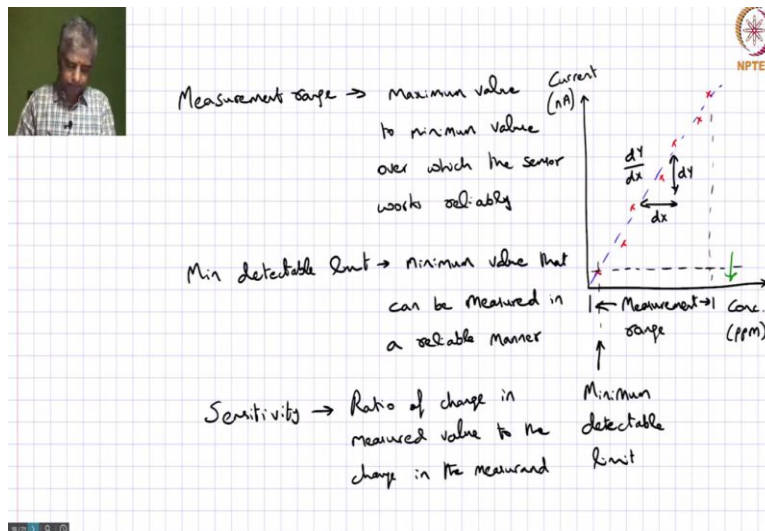 NPTE
Measurement range → Maximum value
to minimum value
over which the sensor
works reliably
Min detectable limit → Minimum value that
can be measured in
a reliable manner
Sensitivity → Ratio of change in
measured value to the
change in the measurand
Current
(nA)
dY
dx
dY
dx
← Measurement →
range
Conc.
(ppm)
Minimum
detectable
limit